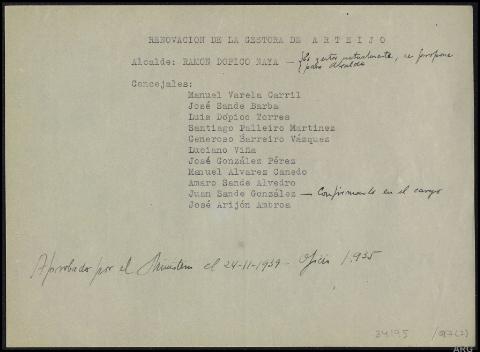 RENOVACION DE LA GESTORA DE A R T E I J O
Alcalde: RAMON DOPICO NAYA — Es gestor actualmente, se propone
para Alcalde
Concejales:
Manuel Varela Carril
José Sande Barba
Luis Dópico Torres
Santiago Palleiro Martinez
Generoso Barreiro Vázquez
Luciano Viña
José González Pérez
Manuel Alvarez Canedo
Amaro Sande Alvedro
Juan Sande González — Confirmando en el cargo
José Arijón Ambroa
Aprobado por el Ministerio el 24-11-1939 - Oficio 1,935